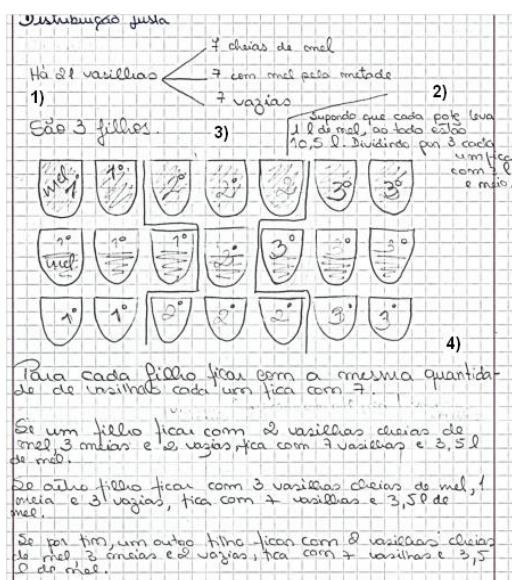 Distribuição justa
7 cheias de mel
Há 21 vasilhas
7 com mel pela metade
7 vazias
1)
2)
São 3 filhos.
3)
Supondo que cada pote leva
1 l de mel, ao todo estão
10,5 l. Dividindo por 3 cada
um fica
com 3 l
e meio.
mel 1º 1º 2º 2º 2 3º 3º
1º mel 1º 1º 2º 3º 3º 3º
1º 1º 2º 2º 2º 3º 3º
4)
Para cada filho ficar com a mesma quantida-
de de vasilhas cada um fica com 7.
Se um filho ficar com 2 vasilhas cheias de
mel, 3 meias e 2 vazias, fica com 7 vasilhas e 3,5 l
de mel.
Se outro filho ficar com 3 vasilhas cheias de mel, 1
meia e 3 vazias, fica com 7 vasilhas e 3,5 l de
mel.
Se por fim, um outro filho ficar com 2 vasilhas cheias
de mel 3 meias e 2 vazias, fica com 7 vasilhas e 3,5
l de mel.